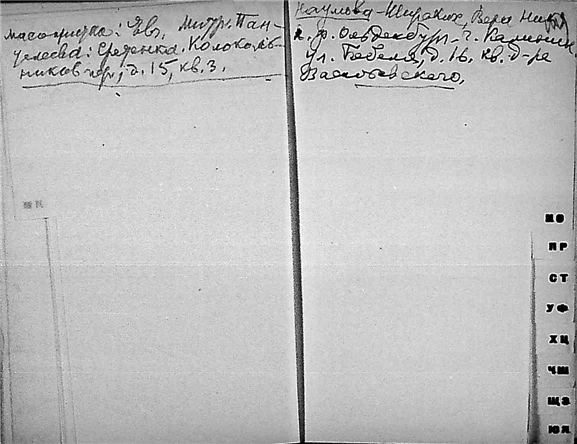 масажистка: Ев. Митр. Пан-
телеева: Сретенка, Колоколь-
ников пер., д. 15, кв. 3.
Наумова-Широких, Вера Ник.
г. Калинин,
ул. Бебеля, д. 16, кв. д-ра
Васильевского.
МН
НО
ПР
СТ
УФ
ХЦ
ЧШ
ЩЭ
ЮЯ